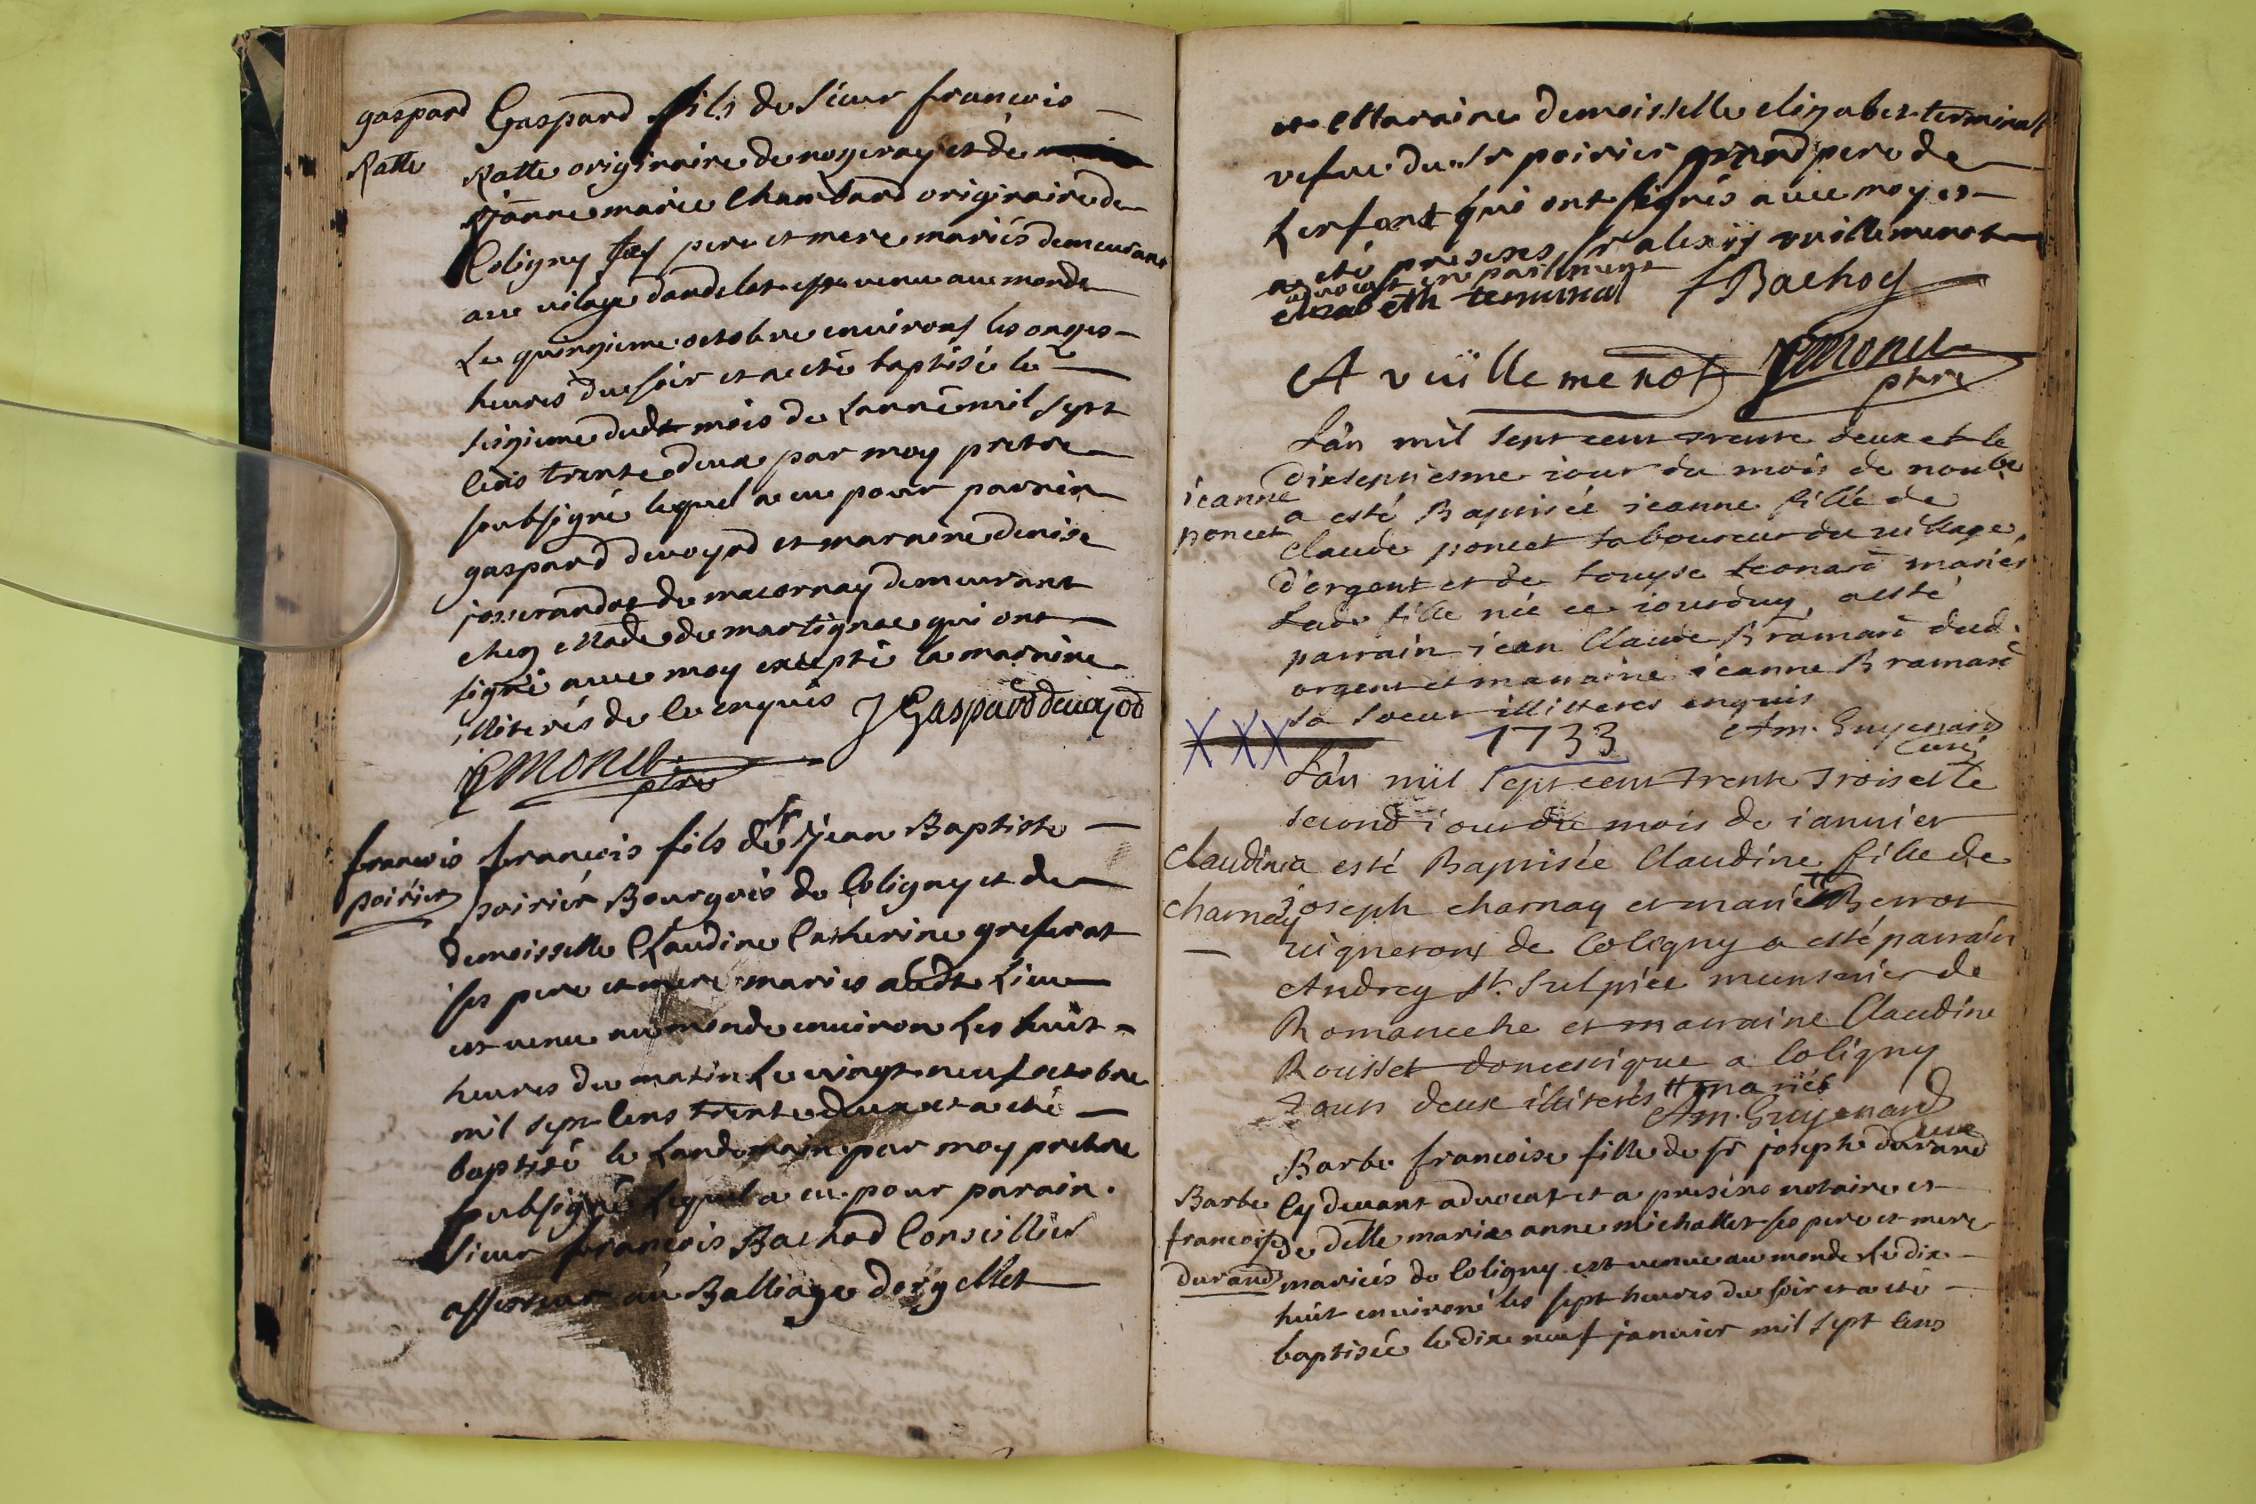 gaspard
Ratte
Gaspard fils du Sieur francois
Ratte originaire de nozeray et de
jeanne marie Chambard originaire de
Coligny ses pere et mere mariés demeurant
au vilage dandelot est venu au monde
Le quinzieme octobre environs les onzes
heures du soir et a eté baptisé le
seizieme dudt mois de Lannè mil sept
Cens trente deux par moy pretre
soubsigné lequel a eu pour parrein
gaspard devoyod et marraine denise
josserandot de macornay demeurant
chez Made de martignac qui ont
signé avec moy excepté la marraine
illiteres de ce enquis J Gaspard devoyod
Monet
ptre
francois
poirier
francois fils de sr jean Baptiste
poirier Bourgois de Coligny et de
demoisselle Claudine Catherine greferat
ses pere et mere mariés audt Lieu
est venu au monde environ Les huit
heures du matin Le vingt neuf octobre
mil sept Cens trente deux et a eté
baptisé le Landemain par moy prebtre
soubsigné Lequel a eu pour parain
Sieur francois Bachod Conseillier
assesseur au Balliage dorgellet
et Maraine demoisselle elizabet terminal
vefve du Sr poirier grand pere de
Lenfant qui ont signés avec moy et
a eté presens Sr alexis vuillemenot
advocat en parlement
elizabeth terminal f Bachod
A vuillemenot Monet
ptre
jeanne
poncet
L'an mil sept cent trente deux et le
dixseptiesme iour du mois de noube
a esté Baptisée jeanne fille de
Claude poncet laboureur du village
d'argent et de Louyse Leonard mariés
Lade fille née ce iourduy, a esté
parrain jean Claude Bramard dud.
argent et marraine jeanne Bramard
sa soeur illiteres enquis
Am. Guyenard
curé
XXX 1733
L'an mil sept cent trente trois et le
second iour du mois de ianuier
Claudine
charnay
a esté Baptisée Claudine fille de
joseph charnay et marie Berrot
vignerons de Coligny a esté parrain
Andrey St. Sulpice meusnier de
Romaneche et marraine Claudine
Rousset domestique a Coligny
tous deux illiterés # mariés
Am. Guyenard
curé
Barbe
francoise
durand
Barbe francoise fille de sr joseph durand
Cy devant advocat et a presens notaire et
De delle marie anne michallet ses pere et mere
mariés de Coligny est venue au monde Le dix
huit environ les sept heures du soir et a eté
baptisée le dix neuf janvier mil sept Cens